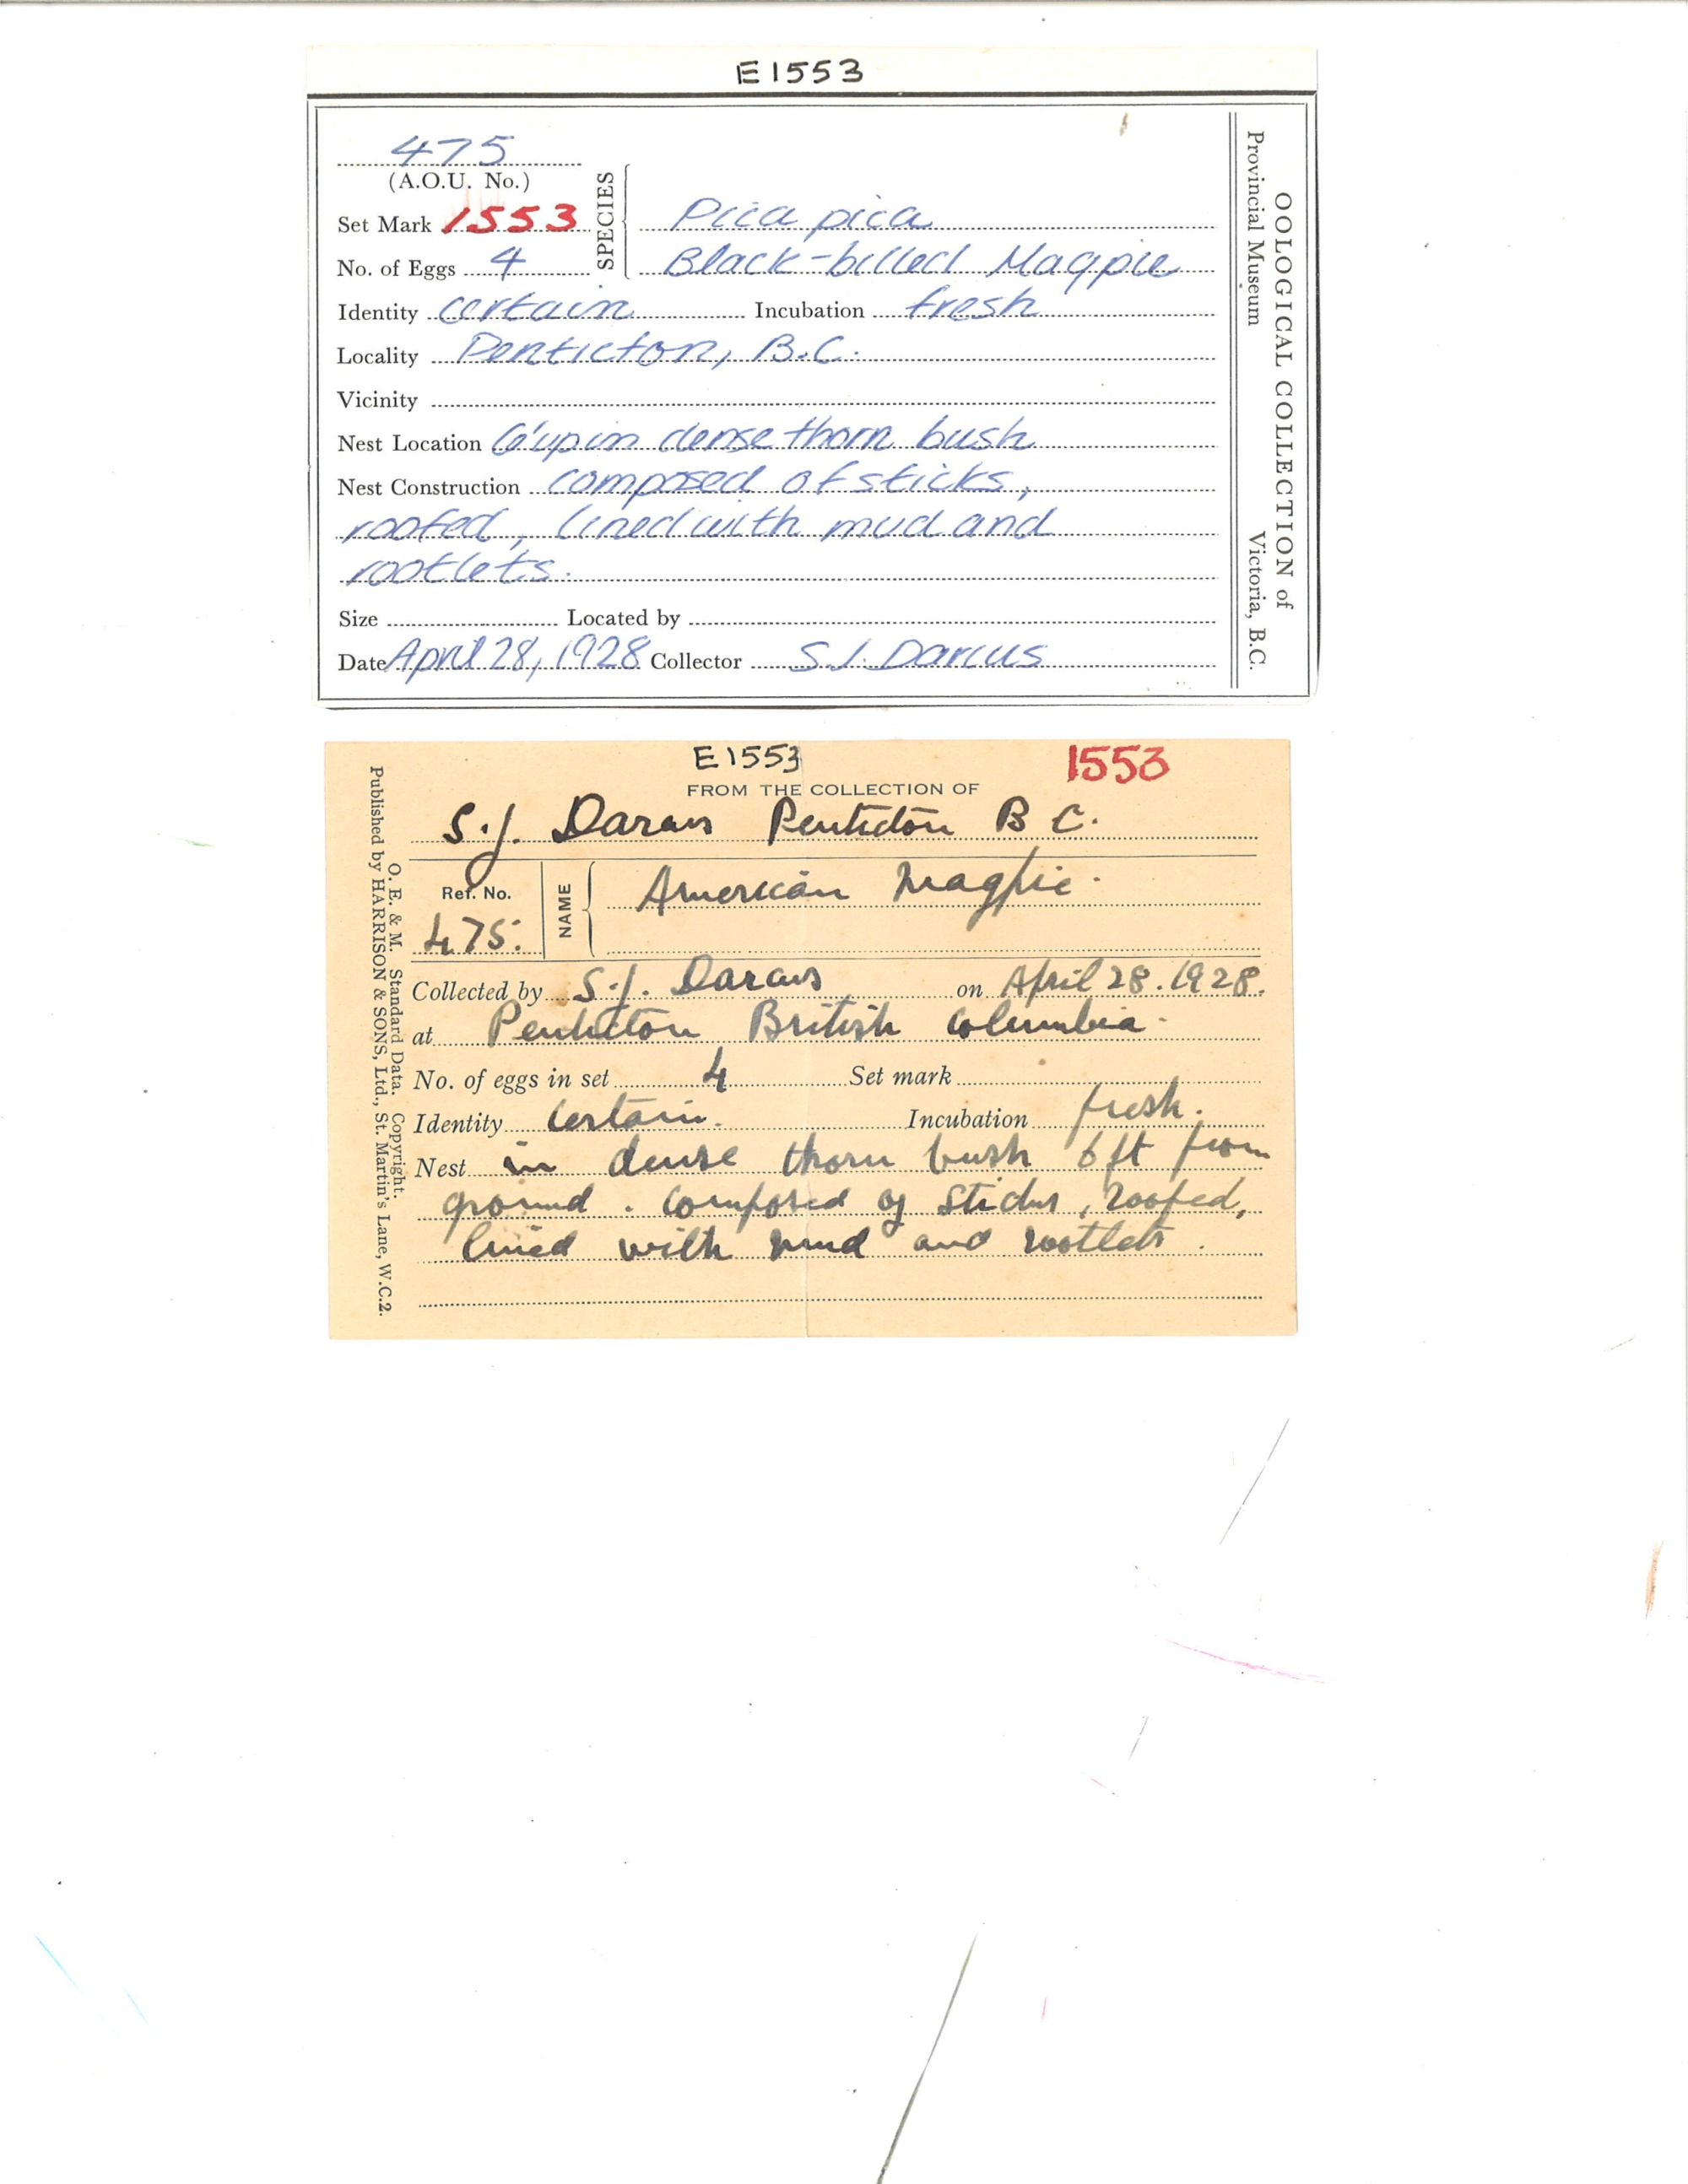 E1553
475
(A.O.U. No.)
SPECIES
Set Mark 1553 Pica pica
No. of Eggs 4 Black-billed Magpie
Identity certain Incubation fresh
Locality Penticton, B.C.
Vicinity
Nest Location 6' up in dense thorn bush
Nest Construction composed of sticks,
roofed, lined with mud and
rootlets.
Size Located by
Date April 28, 1928 Collector S.J. Darcus
OOLOGICAL COLLECTION of
Provincial Museum Victoria, B.C.
E1553 1553
FROM THE COLLECTION OF
S.J. Darcus Penticton B C.
Ref. No.
475.
NAME
American Magpie.
Collected by S.J. Darcus on April 28. 1928.
at Penticton British Columbia.
No. of eggs in set 4 Set mark
Identity Certain. Incubation fresh.
Nest in dense thorn bush 6 ft from
ground. Composed of sticks, roofed,
lined with mud and rootlets.
O. E. & M. Standard Data. Copyright.
Published by HARRISON & SONS, Ltd., St. Martin's Lane, W.C.2.